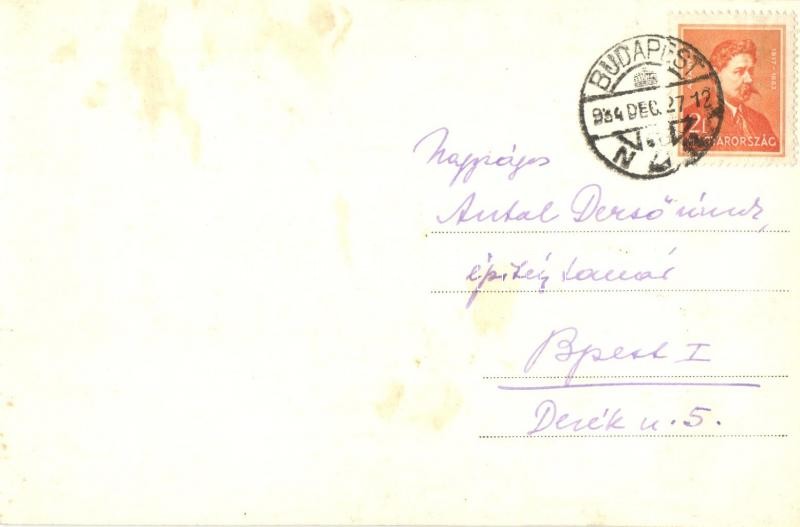 BUDAPEST
934 DEC. 27 12
1817-1882
2f
MAGYARORSZÁG
Nagyságos
Antal Dezső úrnak
építész tanár
Bpest I
Derék u. 5.